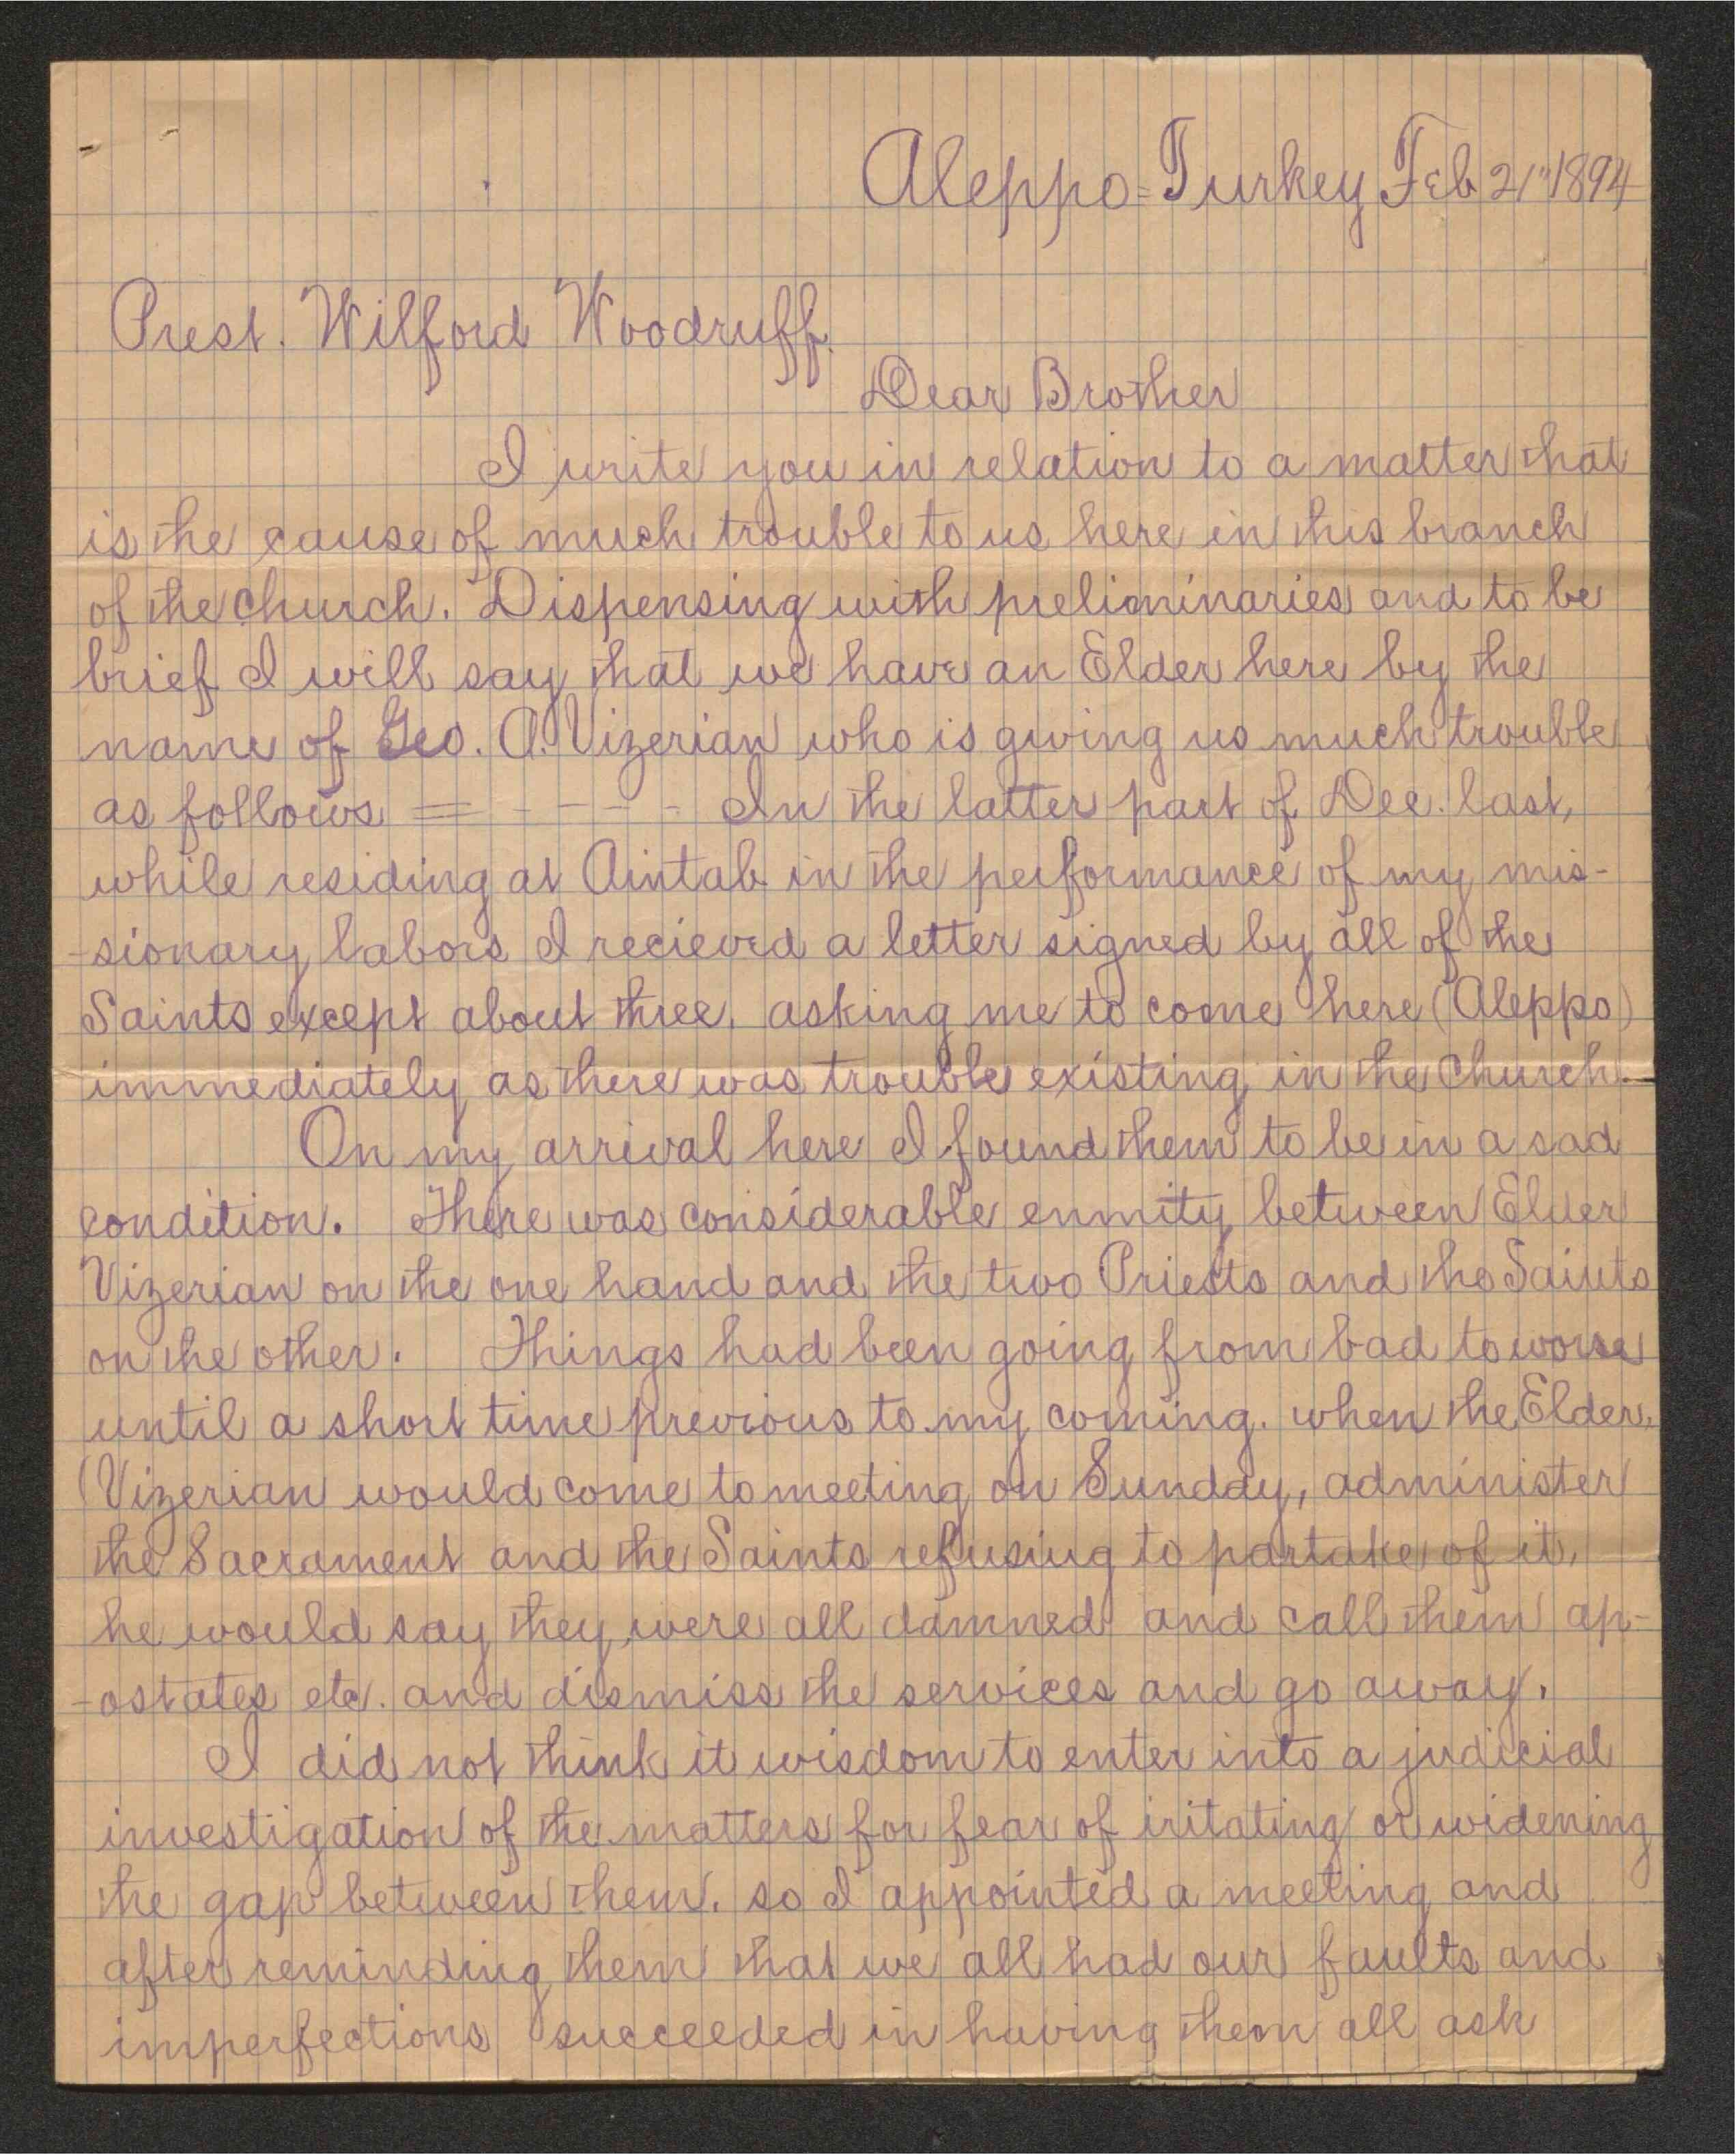 Aleppo=Turkey Feb 21" 1894
Prest. Wilford Woodruff.
Dear Brother
I write you in relation to a matter that
is the cause of much trouble to us here in this branch
of the church. Dispensing with preliminaries and to be
brief I will say that we have an Elder here by the
name of Geo. A. Vizerian who is giving us much trouble
as follows = - - - - - In the latter part of Dec. last,
while residing at Aintab in the performance of my mis-
-sionary labors I recieved a letter signed by all of the
Saints except about three, asking me to come here (Aleppo)
immediately as there was trouble existing in the Church.
On my arrival here I found them to be in a sad
condition. There was considerable enmity between Elder
Vizerian on the one hand and the two Priests and the Saints
on the other. Things had been going from bad to worse
until a short time previous to my coming. when the Elder,
(Vizerian would come to meeting on Sunday, administer
the Sacrament and the Saints refusing to partake of it,
he would say they were all damned and call them ap-
-ostates etc. and dismiss the services and go away.
I did not think it wisdom to enter into a judicial
investigation of the matters for fear of iritating or widening
the gap between them. so I appointed a meeting and
after reminding them that we all had our faults and
imperfections succeeded in having them all ask